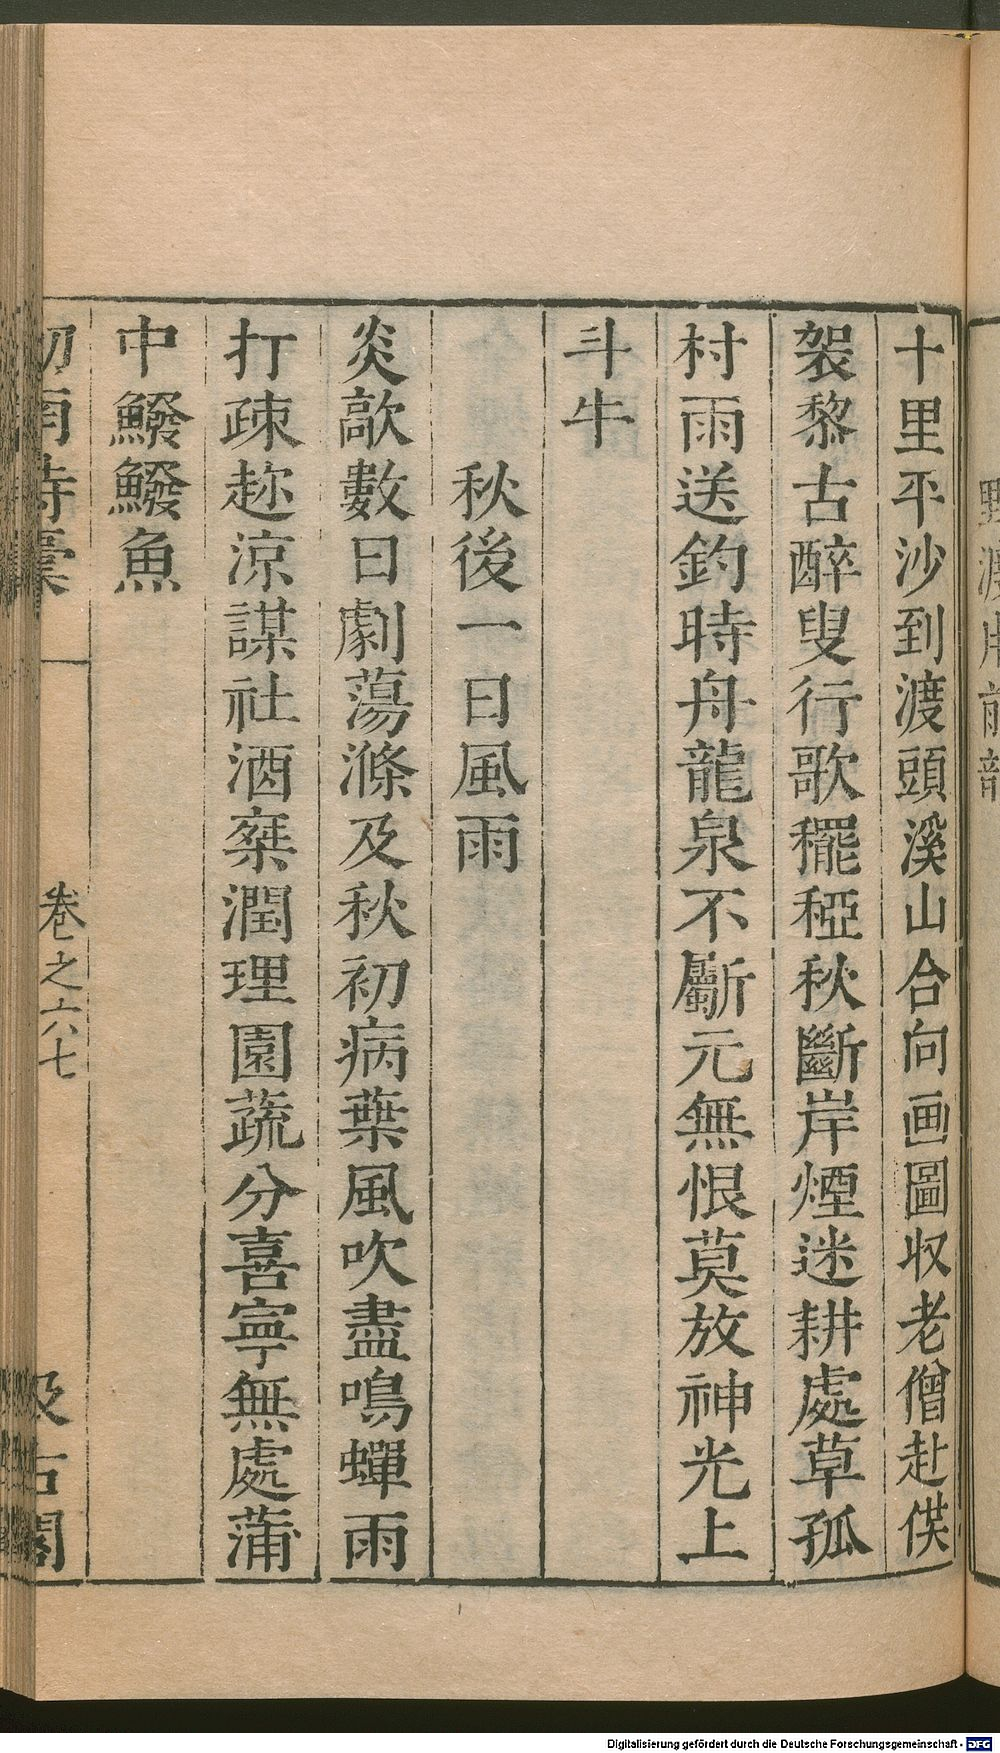 野渡
十里平沙到渡頭溪山合向画圖収老僧赴供
袈黎古醉叟行歌䆉稏秋斷岸煙迷耕處草孤
村雨送釣時舟龍泉不斸元無恨莫放神光上
斗牛
秋後一日風雨
炎歊數日劇蕩滌及秋初病葉風吹盡鳴蟬雨
打疎趂涼謀社酒乗潤理園蔬分喜寍無處蒲
中鱍鱍魚
剑南詩稾
卷之六七
汲古閣
Digitalisierung gefördert durch die Deutsche Forschungsgemeinschaft - DFG